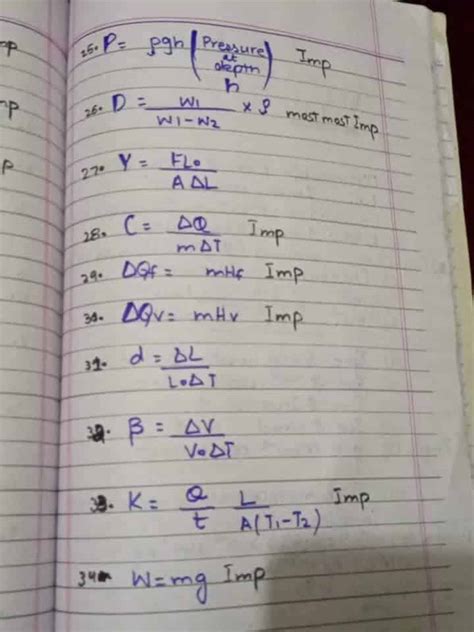 25. P = ρgh (Pressure at depth h) Imp
26. D = W1 / W1 - W2 × ρ most most Imp
27. Y = FL₀ / A ΔL
28. C = ΔQ / mΔT Imp
29. ΔQf = mHf Imp
30. ΔQv = mHv Imp
31. d = ΔL / L₀ΔT
32. β = ΔV / V₀ΔT
33. K = Q / t L / A(T1-T2) Imp
34. W = mg Imp